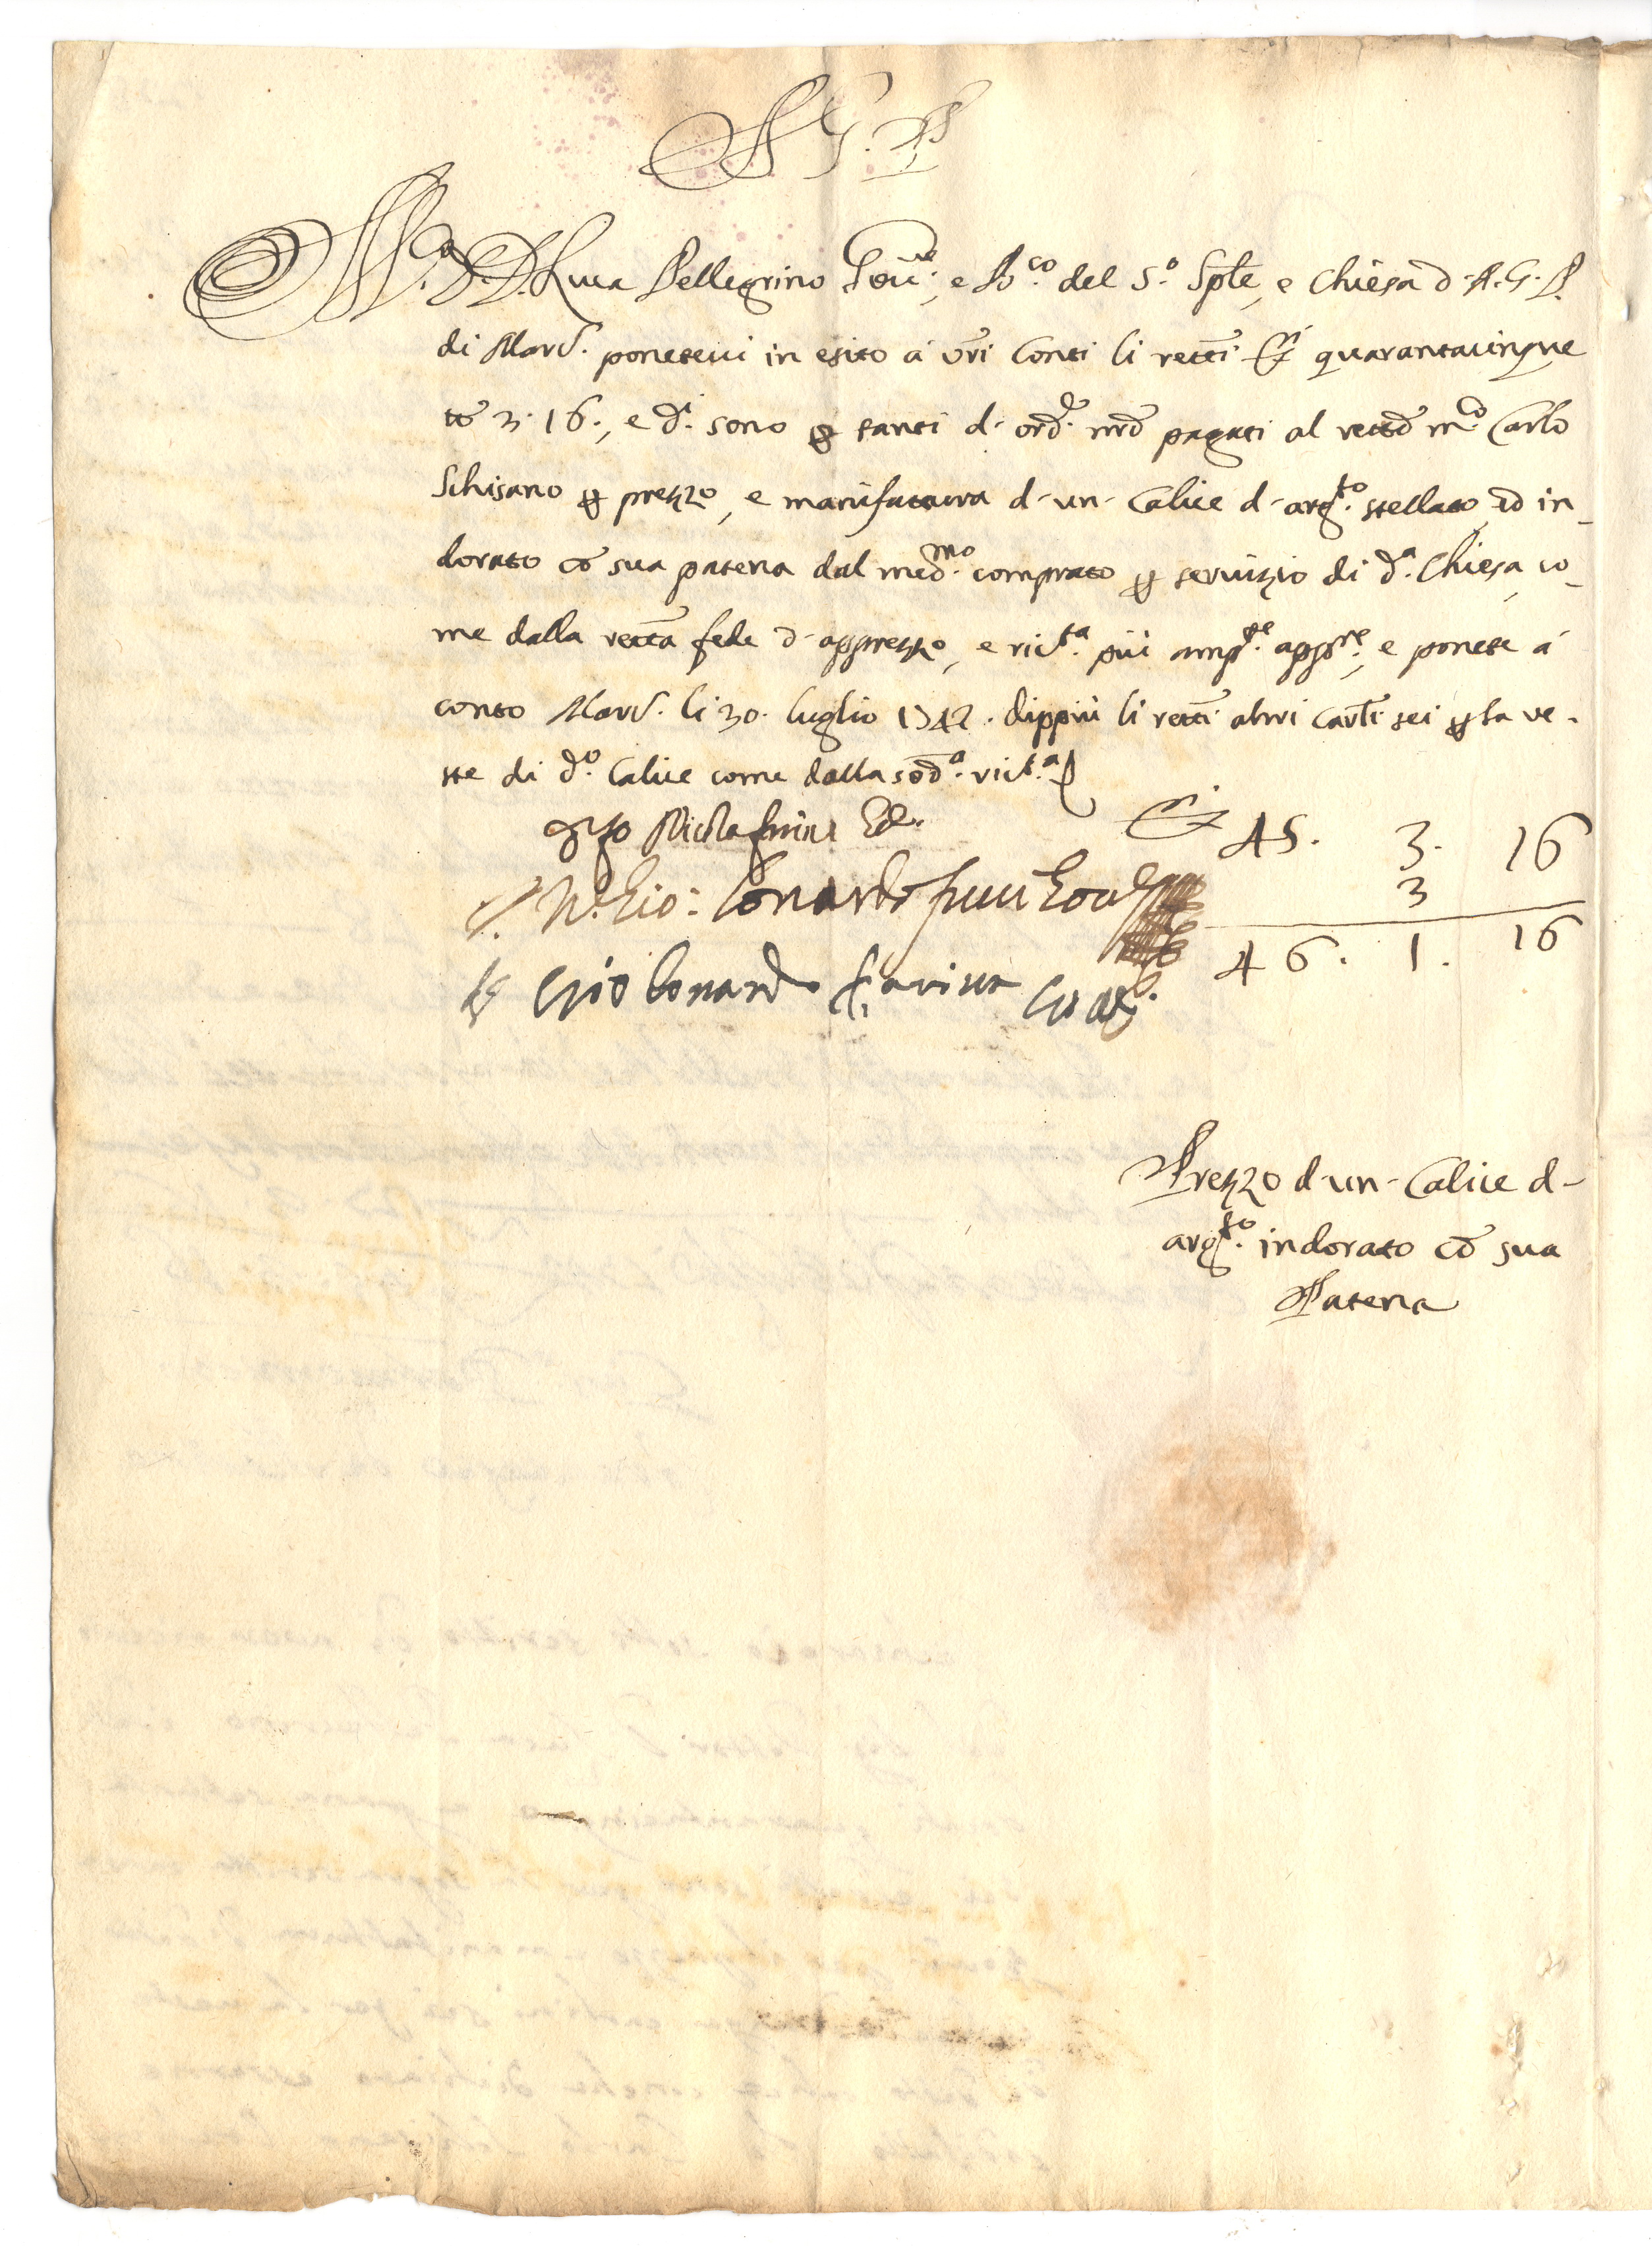 A. G. P.
M.co D. Luca Pellegrino Gou.re, e B.co del S.o Sple, e Chiesa d. A. G. P.
di Mard. poneteui in esito à vr̃i Conti li rettñi quarantacinque
tt̃ 3. 16., e d.i sono p̱ tanti d. ord.e nr̃o pagati al rettõ m.co Carlo
Schisano p̱ prezzo, e manifattura d. un. Calice d. arg.to stellato, ed in-
dorato cõ sua patena dal med.mo comprato p̱ seruizio di d.a Chiesa, co-
me dalla rettã fede d. apprezzo, e ric.ta più amp.te app.re, e ponete à
conto Mard. li 30. luglio 1742. dippiù li rettñi altri Carl.i sei p̱ la ve-
ste di d.o Calice come dalla sod.a ric.ta
45. 3. 16
3
46. 1. 16
Prezzo d. un. Calice d-
arg.to indorato cõ sua
Patena